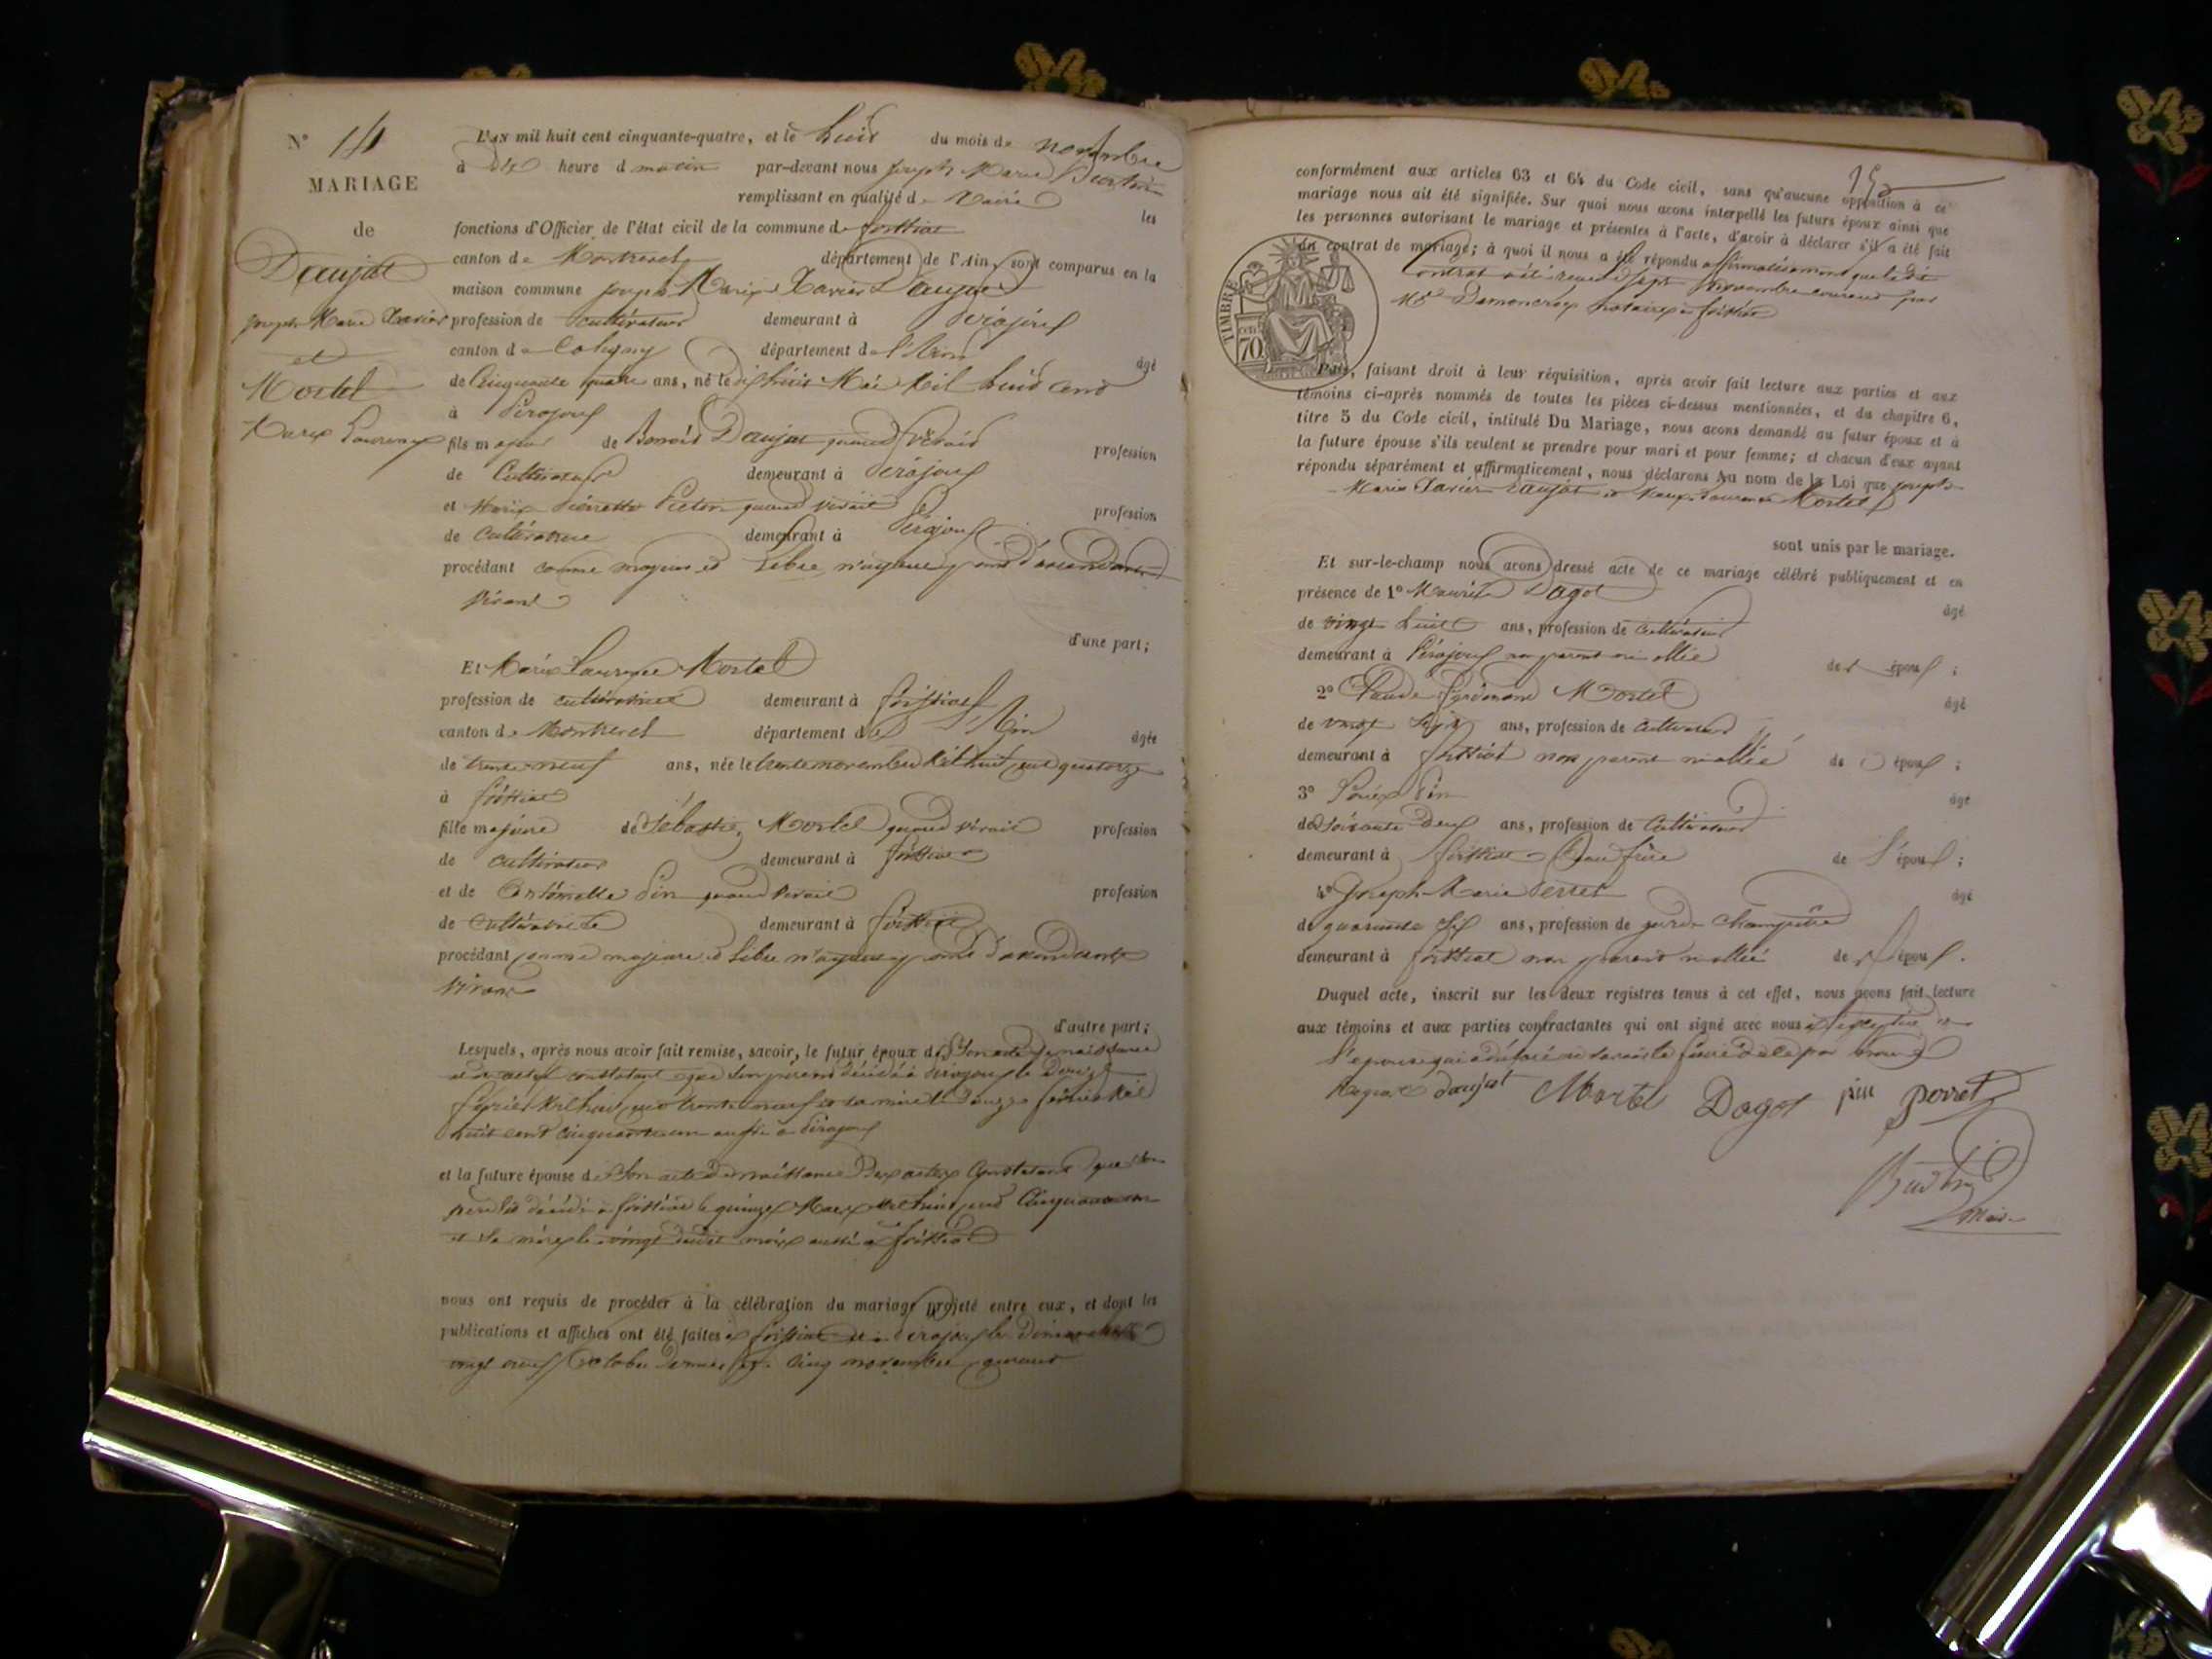 N° 14
MARIAGE
de
Daujat
Joseph Marie Xavier
et
Mortel
Marie Laurence
L'AN mil huit cent cinquante-quatre, et le huit du mois de novembre
à dix heure d matin par-devant nous Joseph Marie
remplissant en qualité de Maire les
fonctions d'Officier de l'état civil de la commune de foissiat
canton de Montrevel département de l'Ain, sont comparus en la
maison commune Joseph Marie Xavier Daujat
profession de cultivateur demeurant à Pirajoux
canton de Coligny département de l'Ain âgé
de Cinquante quatre ans, né le dix huit Mai Mil huit cent
à Pirajoux
fils majeur de Benoit Daujat quand vivait profession
de Cultivateur demeurant à Pirajoux
et Marie Pierrette quand vivait profession
de Cultivatrice demeurant à Pirajoux
procédant comme majeur et Libre n'ayant point d'ascendants
vivant
d'une part;
Et Marie Laurence Mortel
profession de cultivatrice demeurant à foissiat
canton de Montrevel département de l'Ain âgée
de trente neuf ans, née le trente novembre Mil huit cent quatorze
à foissiat
fille majeure de Sébastien Mortel quand vivait profession
de cultivateur demeurant à foissiat
et de Antoinette Pin quand vivait profession
de cultivatrice demeurant à foissiat
procédant comme majeure et Libre n'ayant point d'ascendants
vivant
d'autre part;
Lesquels, après nous avoir fait remise, savoir, le futur époux de Son acte de naissance
et des actes constatant que son père est décédé à Pirajoux le Douze
février Mil huit cent trente neuf et sa mère le Douze février Mil
huit cent cinquante un aussi à Pirajoux
et la future épouse de Son acte de naissance Des actes Constatant que son
père est décédé à foissiat le quinze Mars Mil huit cent Cinquante un
et Sa mère le vingt dudit mois aussi à foissiat
nous ont requis de procéder à la célébration du mariage projeté entre eux, et dont les
publications et affiches ont été faites à foissiat et à Pirajoux les Dimanches
vingt neuf Octobre dernier et Cinq novembre courant
conformément aux articles 63 et 64 du Code civil, sans qu'aucune opposition à ce
mariage nous ait été signifiée. Sur quoi nous avons interpellé les futurs époux ainsi que
les personnes autorisant le mariage et présentes à l'acte, d'avoir à déclarer s'il a été fait
un contrat de mariage; à quoi il nous a été répondu affirmativement que le dit
contrat a été reçu le sept novembre courant par
Me notaire à foissiat
TIMBRE
70 cent
Puis, faisant droit à leur réquisition, après avoir fait lecture aux parties et aux
témoins ci-après nommés de toutes les pièces ci-dessus mentionnées, et du chapitre 6,
titre 5 du Code civil, intitulé Du Mariage, nous avons demandé au futur époux et à
la future épouse s'ils veulent se prendre pour mari et pour femme; et chacun d'eux ayant
répondu séparément et affirmativement, nous déclarons Au nom de la Loi que Joseph
Marie Xavier Daujat et Marie Laurence Mortel
sont unis par le mariage.
Et sur-le-champ nous avons dressé acte de ce mariage célébré publiquement et en
présence de 1° Maurice Dagot âgé
de vingt huit ans, profession de cultivateur
demeurant à Pirajoux non parent ni allié de l'époux;
2° Claude Ferdinand Mortel âgé
de vingt Six ans, profession de cultivateur
demeurant à foissiat non parent ni allié de époux;
3° Pin âgé
de Soixante Deux ans, profession de Cultivateur
demeurant à foissiat Beau frère de l'époux;
4° Joseph Marie Perret âgé
de quarante Six ans, profession de garde Champêtre
demeurant à foissiat non parent ni allié de l'époux.
Duquel acte, inscrit sur les deux registres tenus à cet effet, nous avons fait lecture
aux témoins et aux parties contractantes qui ont signé avec nous à l'exception de
l'épouse qui a déclaré ne savoir le faire de ce par nous
daujat Mortel Dagot pin perret
Maire